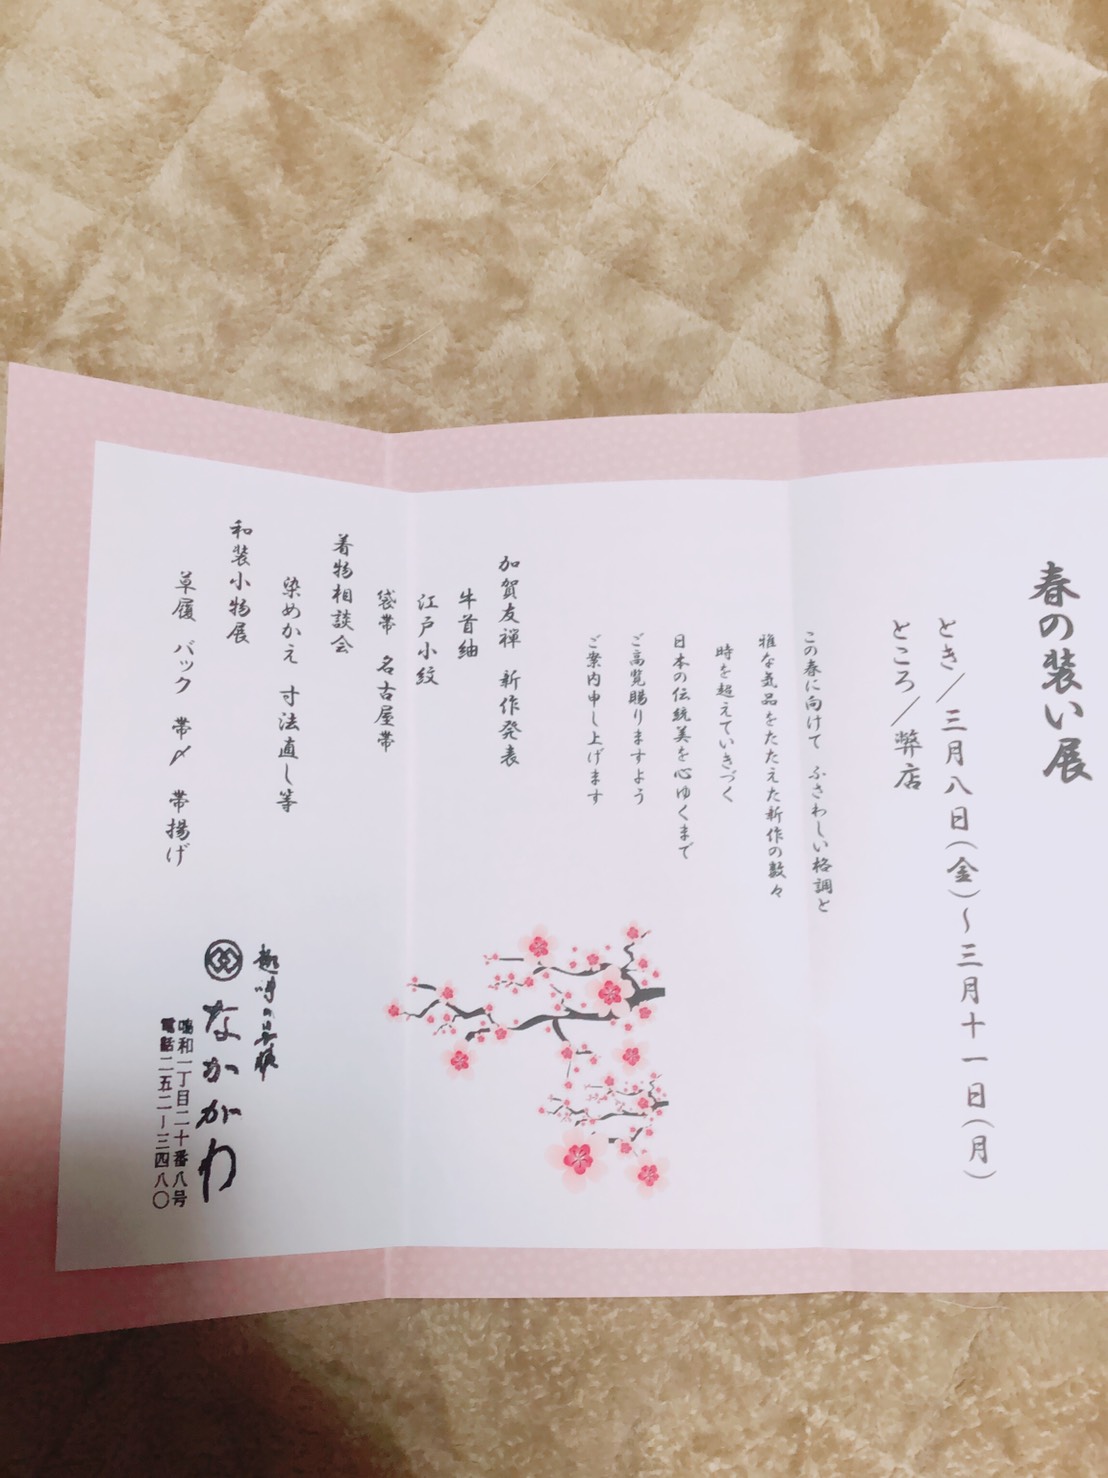 春の装い展
とき／三月八日（金）～三月十一日（月）
ところ／弊店
この春に向けて ふさわしい格調と
雅な気品をたたえた新作の数々
時を超えていきづく
日本の伝統美を心ゆくまで
ご高覧賜りますよう
ご案内申し上げます
加賀友禅 新作発表
牛首紬
江戸小紋
袋帯 名古屋帯
着物相談会
染めかえ 寸法直し等
和装小物展
草履 バック 帯〆 帯揚げ
趣味の呉服
なかがわ
鳴和一丁目二十番八号
電話二五二ー三四八〇